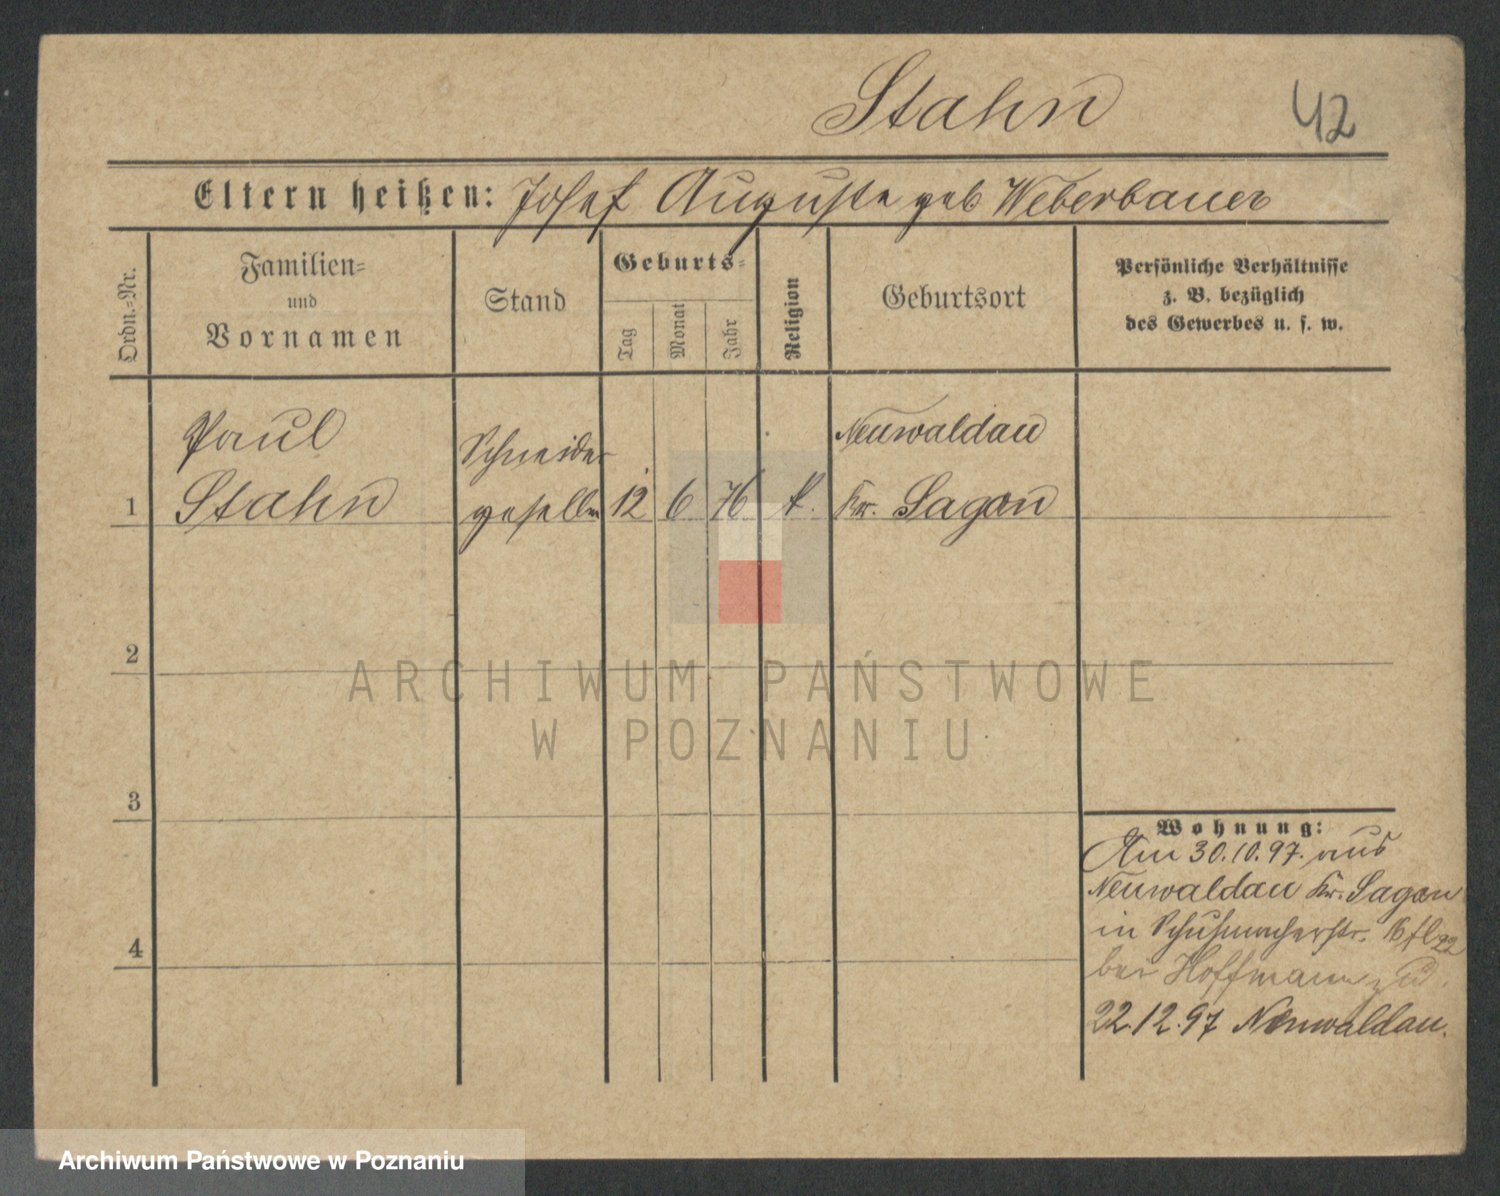 Stahn
42
Eltern heißen: Josef Auguste geb Weberbauer
Ordn.=Nr.
Familien=
und
Vornamen
Stand
Geburts=
Tag
Monat
Jahr
Religion
Geburtsort
Persönliche Verhältnisse
z. B. bezüglich
des Gewerbes u. s. w.
Paul
Schneider
Neuwaldau
1 Stahn geselle 12 6 76 k. Kr. Sagan
2
3
4
Wohnung:
Am 30.10.97. aus
Neuwaldau Kr. Sagan
in Schuhmacherstr. 16
bei Hoffmann
22.12.97 Neuwaldau.
ARCHIWUM PAŃSTWOWE
W POZNANIU
Archiwum Państwowe w Poznaniu